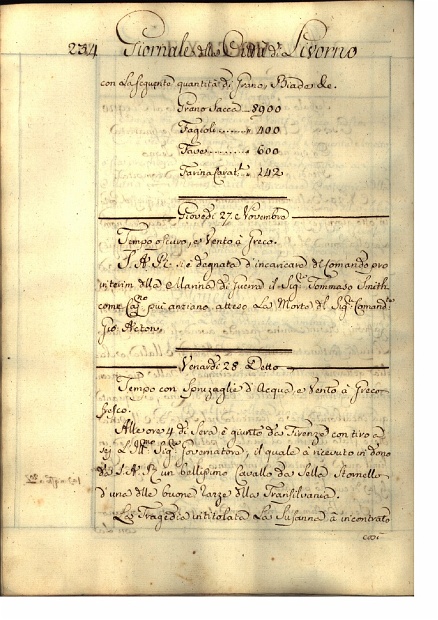 234 Giornale della Città di Livorno
con la seguente quantità di Grano, Biade &c.
Grano Sacca... 8900
Fagioli........ 400
Fave.......... 600
Farina Carat.ⁱ.. 242
Giovedì 27. Novembre
Tempo oscuro, e Vento à Greco.
S. A. R. si è degnata d'incaricare di Comando pro
interim della Marina di Guerra il Sig.ʳ Tommaso Smith
come Cap.ⁿᵒ più anziano, atteso la Morte del Sig.ʳ Comand.ᵗᵉ
Gio. Acton.
Venardì 28 Detto
Tempo con Spruzaglie d'Acqua, e Vento à Greco
fresco.
Alle ore 4 di Sera è giunto da Firenze con tiro a
sej L'Ill.ᵐᵒ Sig.ʳ Governatore, il quale à ricevuto in dono
da S. A. R. un bellissimo Cavallo da Sella Stornello
d'una delle buone Razze della Transilvania.
La Tragedia intitolata La Susanna à incontrato